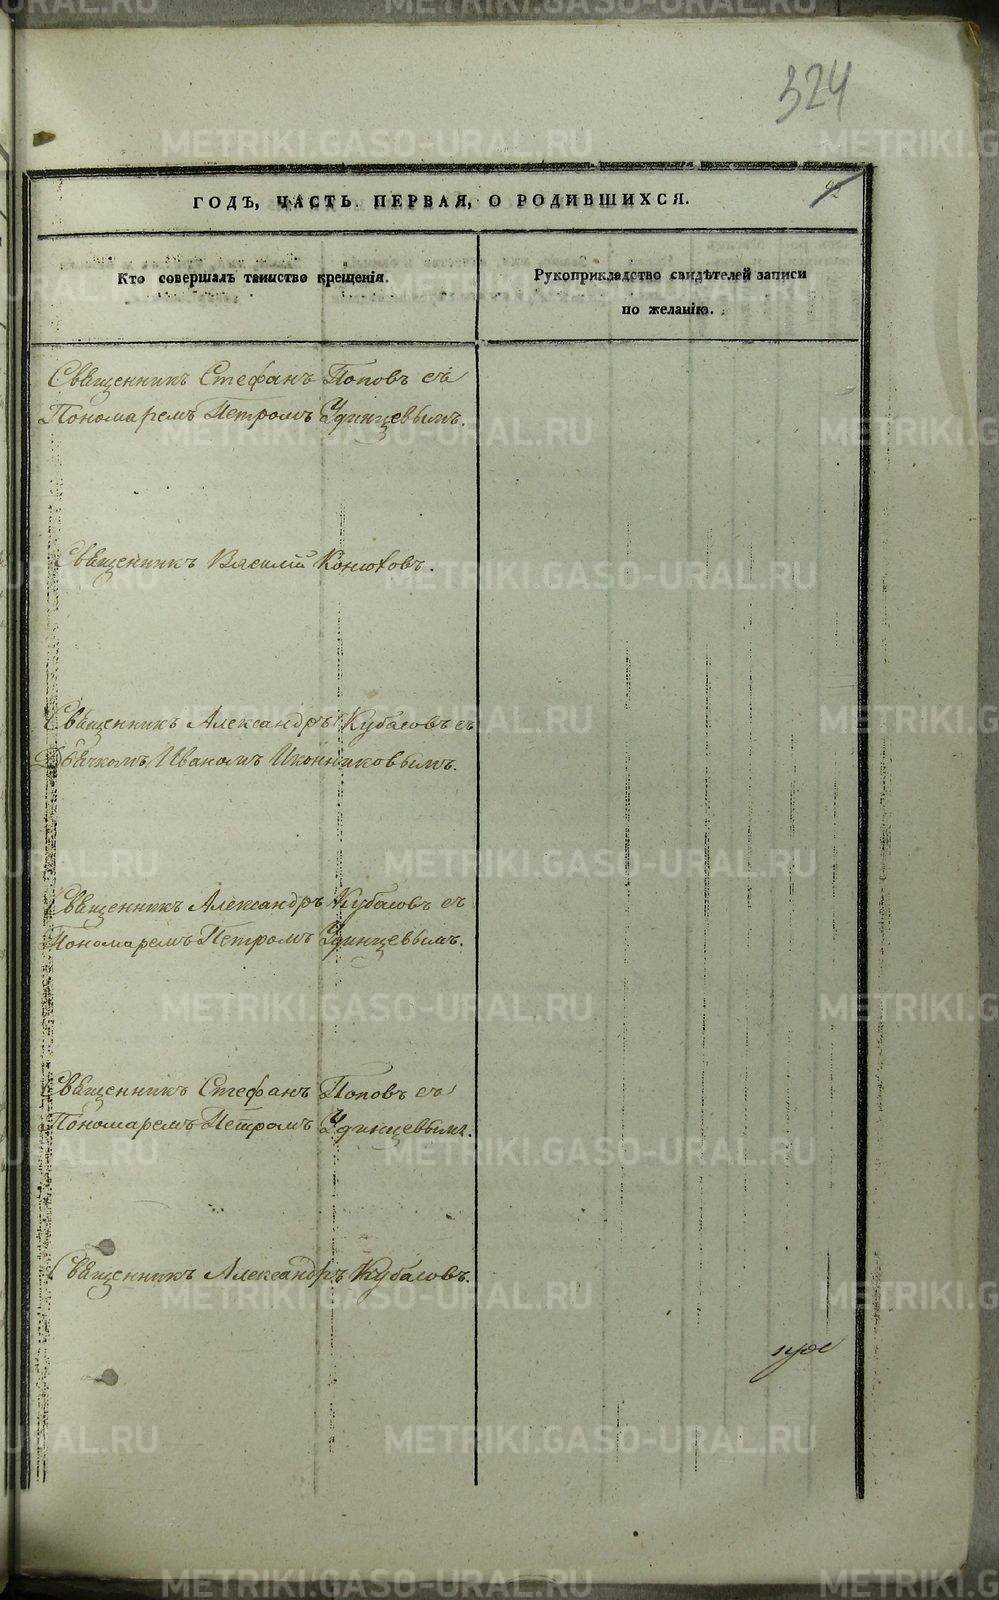 324
ГОДЪ, ЧАСТЬ ПЕРВАЯ, О РОДИВШИХСЯ.
Кто совершалъ таинство крещенія.
Рукоприкладство свидѣтелей записи
по желанію.
Священникъ Стефанъ Поповъ съ
Пономаремъ Петромъ Удинцевымъ.
Священникъ Василій Конюховъ.
Священникъ Александръ Кубасовъ съ
Дьячкомъ Иваномъ Иконниковымъ.
Священникъ Александръ Кубасовъ съ
Пономаремъ Петромъ Удинцевымъ.
Священникъ Стефанъ Поповъ съ
Пономаремъ Петромъ Удинцевымъ.
Священникъ Александръ Кубасовъ.
METRIKI.GASO-URAL.RU